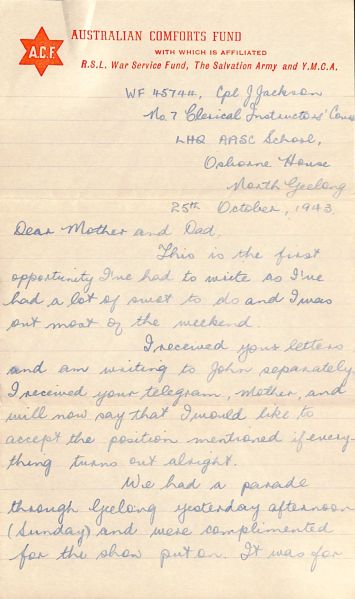 A.C.F.
AUSTRALIAN COMFORTS FUND
WITH WHICH IS AFFILIATED
R.S.L. War Service Fund, The Salvation Army and Y.M.C.A.
WF 45744, Cpl J Jackson
No. 7 Clerical Instructors' Course
LHQ AASC School,
Osborne House
North Geelong
25th October, 1943.
Dear Mother and Dad,
This is the first
opportunity I've had to write as I've
had a lot of swot to do and I was
out most of the weekend.
I received your letters
and am writing to John separately.
I received your telegram, Mother, and
will now say that I would like to
accept the position mentioned if every-
thing turns out alright.
We had a parade
through Geelong yesterday afternoon
(Sunday) and were complimented
for the show put on. It was for